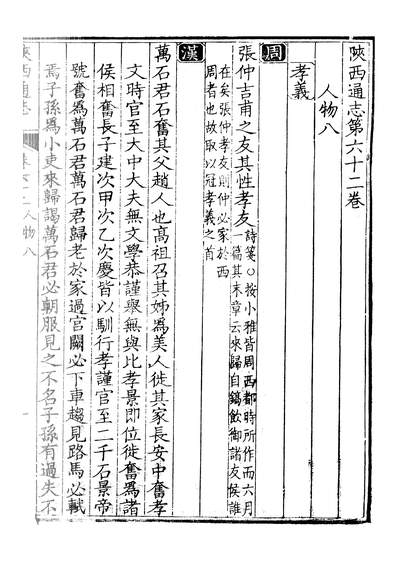 陝西通志第六十二卷
人物八
孝義
周
張仲吉甫之友其性孝友詩箋○按小雅皆周西都時所作而六月
一篇其末章云來歸自鎬飲御諸友侯誰
在矣張仲孝友則仲必家於西
周者也故取以冠孝義之首
漢
萬石君石奮其父趙人也高祖召其姊爲美人徙其家長安中奮孝
文時官至大中大夫無文學恭謹舉無與比孝景即位徙奮爲諸
侯相奮長子建次甲次乙次慶皆以馴行孝謹官至二千石景帝
號奮爲萬石君萬石君歸老於家過宮闕必下車趨見路馬必軾
焉子孫爲小吏來歸謁萬石君必朝服見之不名子孫有過失不
陝西通志 卷六十二人物八 一